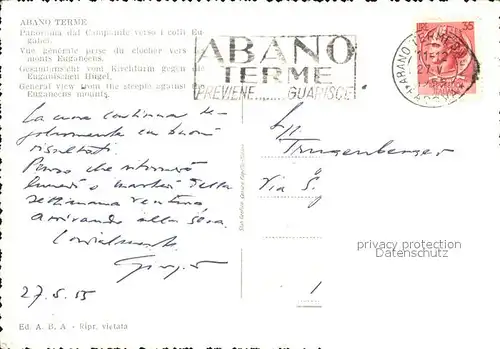 ABANO TERME
Panorama dal Campanile verso i colli Eu-
ganei.
Vue générale prise du clocher vers les
monts Euganéens.
Gesamtansicht vom Kirchturm gegen die
Euganeischen Hügel.
General view from the steeple against the
Euganean mounts.
ABANO
TERME
PREVIENE........GUARISCE
35
ABANO TERME
La cura continua re-
golarmente con buoni
risultati.
Penso che ritornerò
lunedì o martedì della
settimana ventura
arrivando alla sera.
Cordialmente
27.5.55
Trungenberger
Via S.
1
privacy protection
Datenschutz
Ed. A. B. A - Ripr. vietata